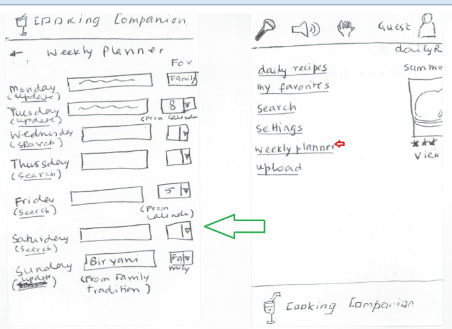 Cooking Companion
← Weekly Planner
For
Monday
(update)
Family
Tuesday
(update)
8
(From Calendar)
Wednesday
(search)
Thursday
(search)
Friday
(search)
5
(From Calendar)
Saturday
(search)
Sunday
(update)
Biryani
Family
(From Family
Tradition)
Guest
dailyR
daily recipes
summa
my favorites
search
settings
weekly planner
view
upload
Cooking Companion